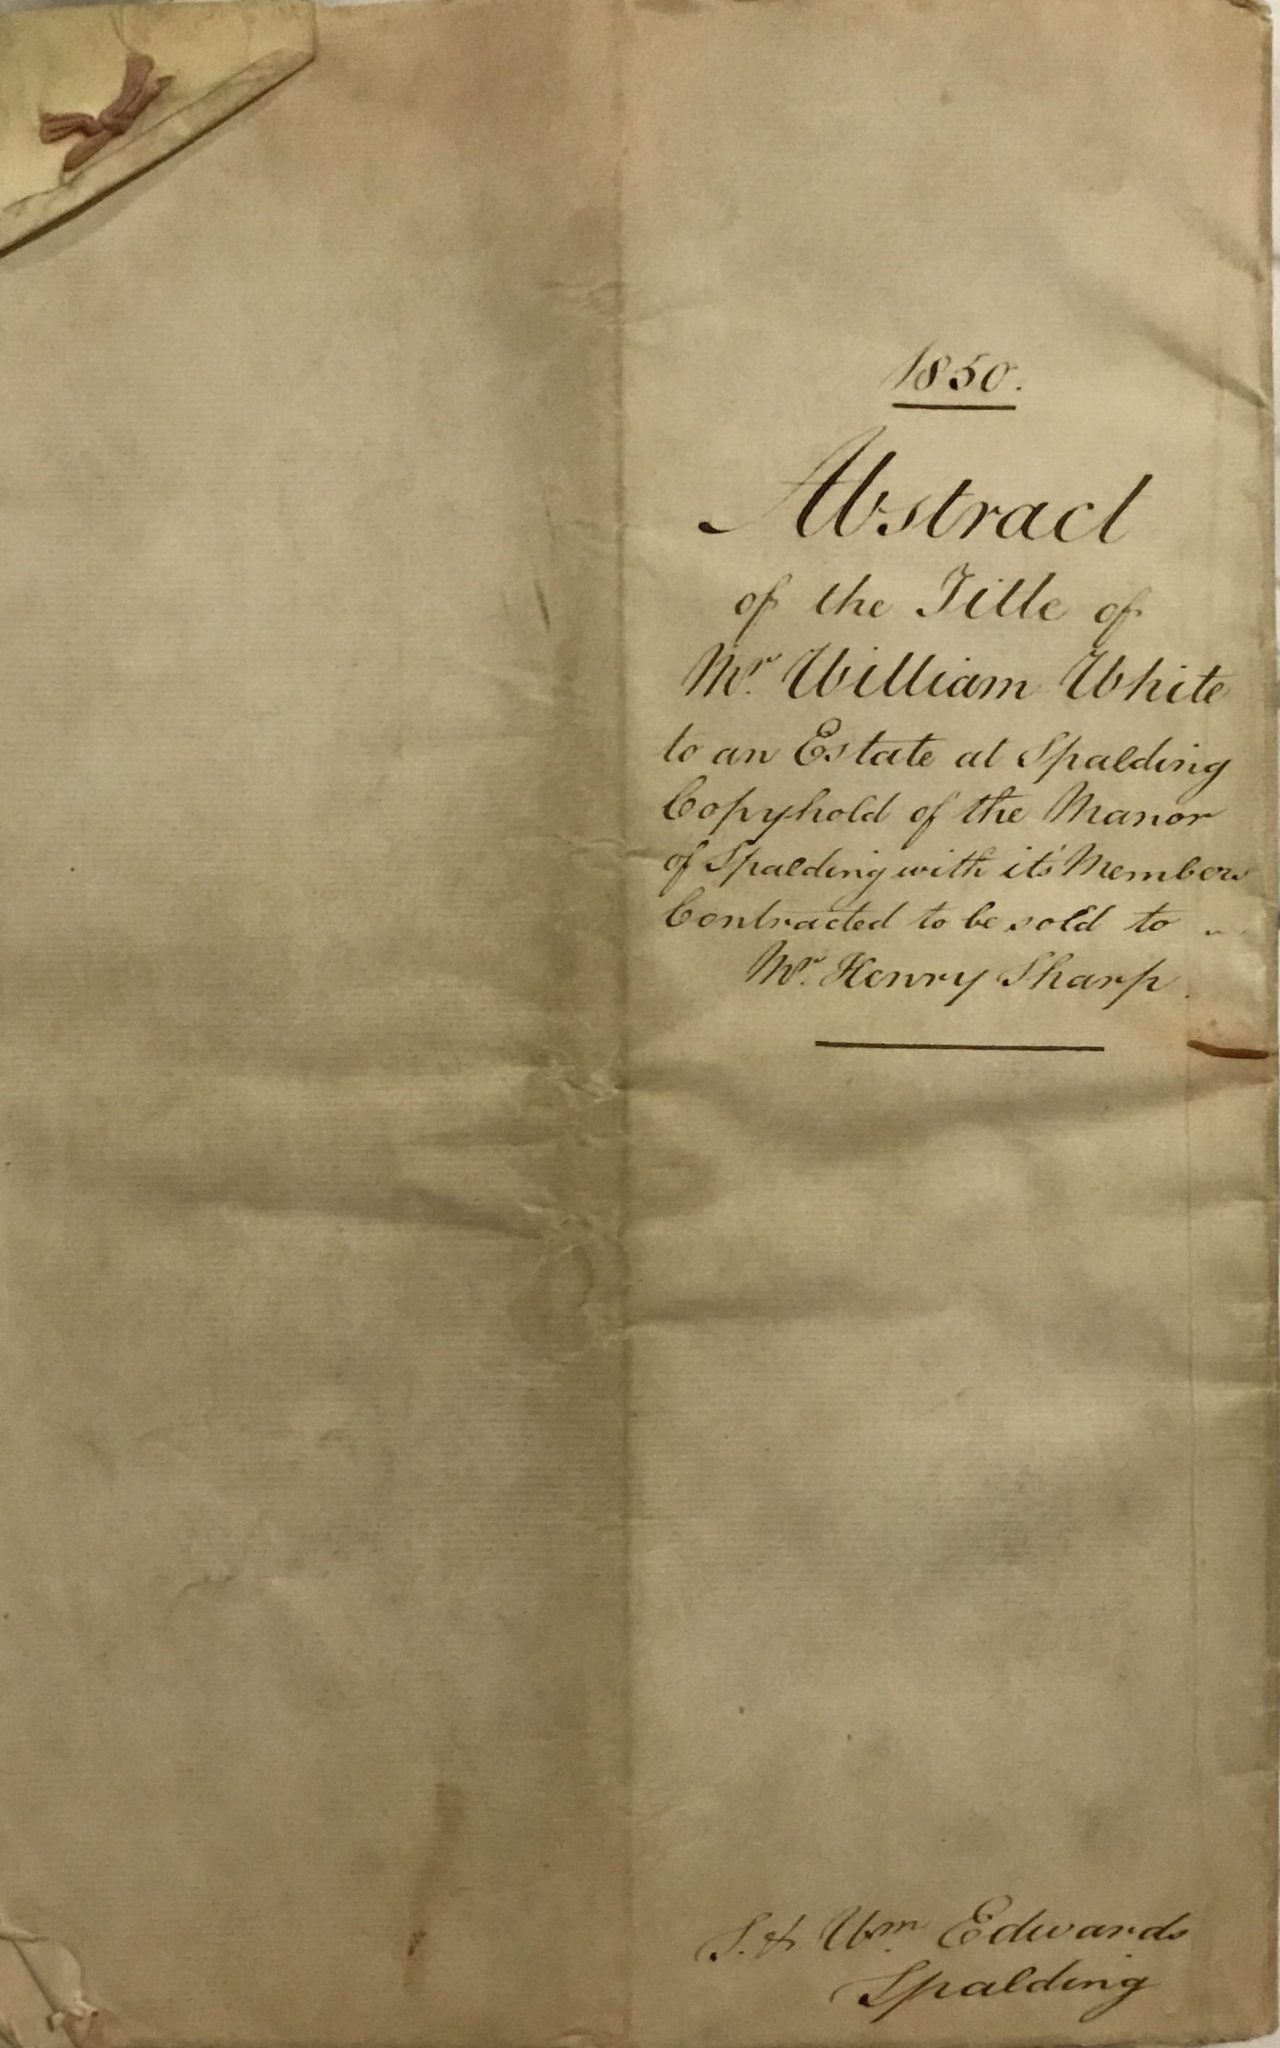 1850.
Abstract
of the Title of
Mr. William White
to an Estate at Spalding
Copyhold of the Manor
of Spalding with it's Members
Contracted to be sold to
Mr. Henry Sharp.
S. & Wm. Edwards
Spalding